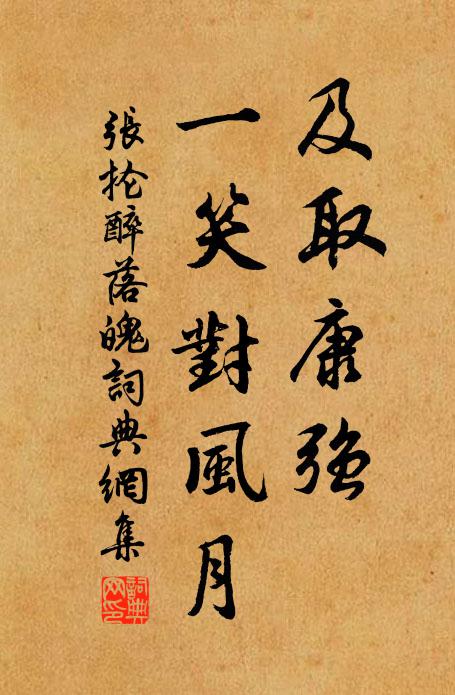 及取康強
一笑對風月
張掄醉落魄詞典網集
詞典
網印